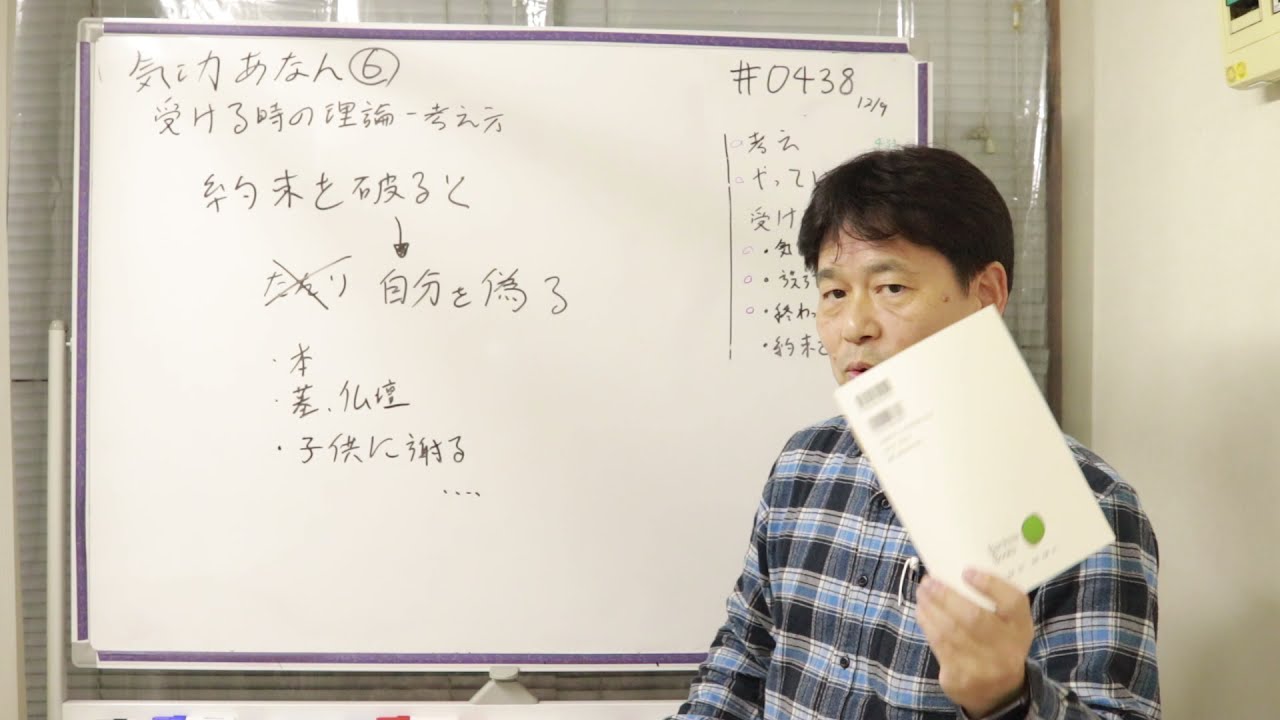 気と力 あなん⑥
受ける時の理論-考え方
約束を破ると
たたり 自分を偽る
・本
・墓、仏壇
・子供に謝る
....
#0438
12/9
考え
やって
受け
・気
・誤
・終わっ
・約束